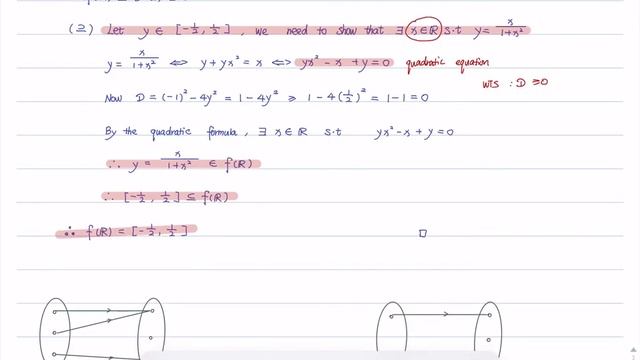 (⊇) Let y ∈ [-1/2, 1/2], we need to show that ∃ x∈ℝ s.t y = x/(1+x²)
y = x/(1+x²) ⟺ y + yx² = x ⟺ yx² - x + y = 0 quadratic equation
WTS : D ≥ 0
Now D = (-1)² - 4y² = 1 - 4y² ≥ 1 - 4(1/2)² = 1 - 1 = 0
By the quadratic formula, ∃ x∈ℝ s.t yx² - x + y = 0
∴ y = x/(1+x²) ∈ f(ℝ)
∴ [-1/2, 1/2] ⊆ f(ℝ)
∴ f(ℝ) = [-1/2, 1/2] □